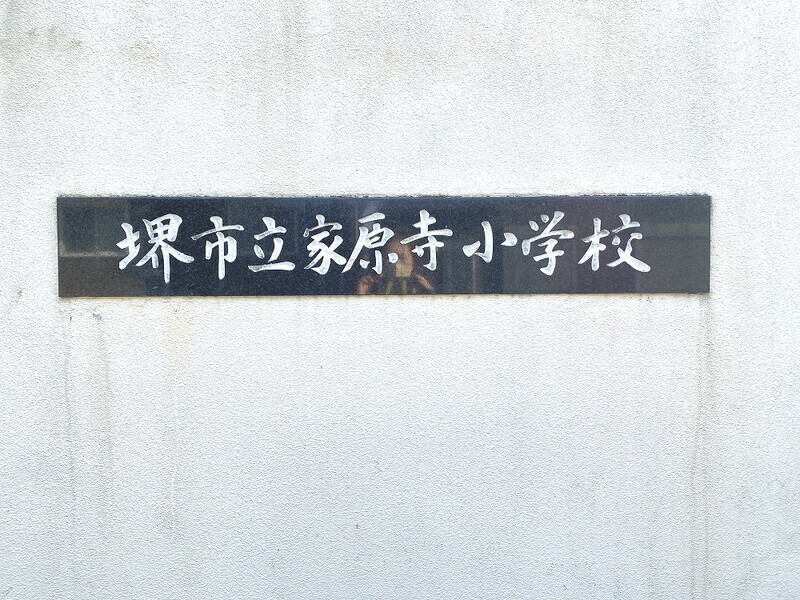 堺市立家原寺小学校